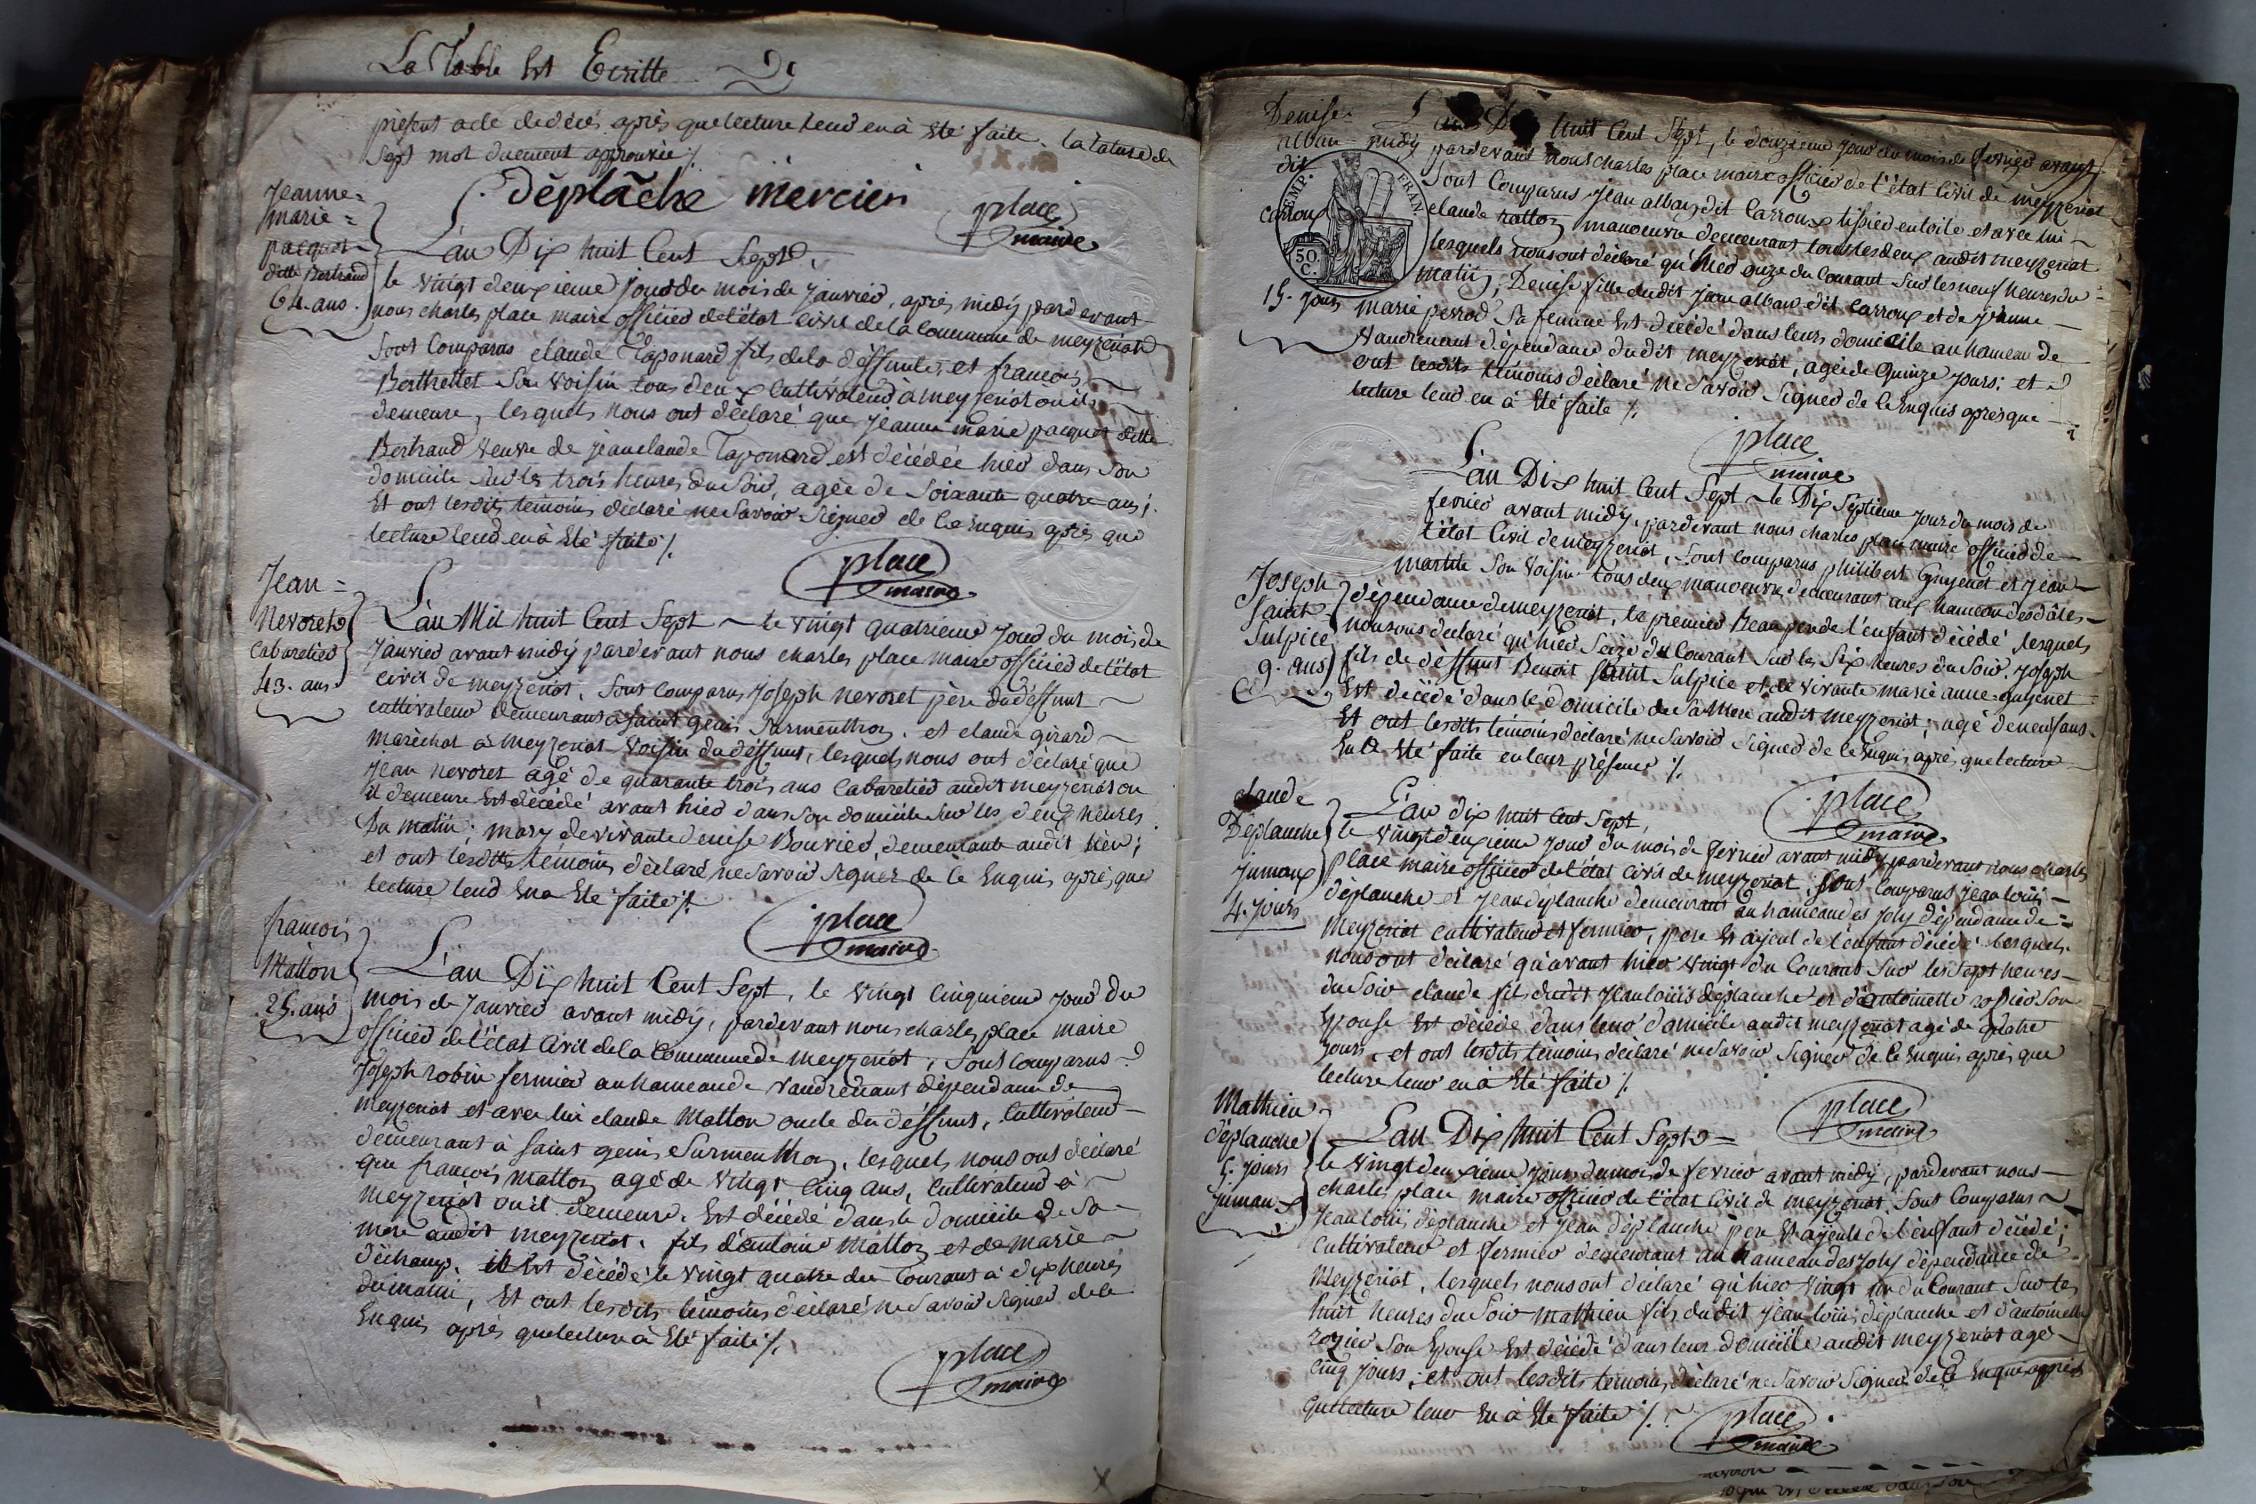 La Table Est Ecritte
présent acte de décés après que lecture leur en à Eté faite. la rature de
Sept mot duement approuvée ./.
déplãche mercier
place
maire
Jeanne=
marie=
pacquet
ditte Bertrand
64. ans.
L'an Dix huit Cent Sept,
le vingt deuxieme jour du mois de janvier, après midÿ pardevant
nous charles place maire officier de l'état civil de la Commune de meyzeriat
Sont Comparus claude Taponard fils de la deffunte, et françois
Berthellet Son voisin tous deux Cultivateur à meyzeriat ou ils
demeure, lesquels nous ont déclaré que jeanne marie pacquet ditte
Bertrand veuve de jean claude Taponard est décédée hier dans Son
domicile Sur les trois heures du Soir, agée de Soixante quatre ans;
Et ont lesdits témoins déclaré ne Savoir Signer de ce Enquis après que
lecture leur en à Eté faite ./.
place
maire
Jean=
Nevoret
Cabaretier
43. ans
L'an Mil huit Cent Sept le vingt quatrieme jour du mois de
janvier avant midÿ pardevant nous charles place maire officier de l'état
civil de meyzeriat. Sont comparus Joseph nevoret père du deffunt
cultivateur demeurant à saint genis Surmenthon. et claude girard
maréchal à meyzeriat voisin du deffunt, lesquels nous ont déclaré que
Jean nevoret agé de quarante trois ans Cabaretier audit meyzeriat ou
il demeure Est décédé avant hier dans Son domicile Sur les deux heures
Du matin: mary de vivante denise Bouvier, demeurante audit lieu;
et ont lesdits témoins déclaré ne Savoir Signer de ce Enquis après que
lecture leur En a Eté faite ./.
place
maire
françois
Matton
25. ans
L'an Dix huit Cent Sept, le vingt Cinquieme jour du
mois de Janvier avant midÿ, pardevant nous charles place maire
officier de l'état Civil de la Commune de meyzeriat, Sont Comparus
Joseph robin fermier au hameau de vaudrenant dépendance de
meyzeriat et avec lui claude Matton oncle du deffunt, Cultivateur
demeurant à Saint genis Surmenthon, lesquels nous ont déclaré
que françois matton agé de vingt Cinq ans, Cultivateur à
meyzeriat ou il demeure. Est décédé dans le domicile de Sa
mere audit meyzeriat. fils d'antoine Matton et de marie
déchamp. il Est décédé le vingt quatre du Courant à dix heures
du matin, Et ont lesdits témoins déclaré ne Savoir Signer de ce
Enquis après que lecture à Eté faite ./.
place
maire
Denise
alban
dit
carroux
15. jours
EMP. FRAN.
50. C.
L'an Dix huit Cent Sept, le douzieme jour du mois de fevrier avant
midÿ pardevant nous charles place maire officier de l'état Civil de meyzeriat
Sont Comparus Jean alban dit Carroux tissier en toile et avec lui
claude matton manoeuvre demeurant tous les deux audit meyzeriat
lesquels nous ont déclaré qu'hier onze du Courant Sur les neuf heures du
matin; Denise fille dudit Jean alban dit Carroux et de Jeanne
marie perrod Sa femme Est décédé dans leurs domicile au hameau de
vaudrenant dépendance dudit meyzeriat, agée de Quinze jours; et
ont lesdits témoins déclaré ne Savoir Signer de ce Enquis apres que
lecture leur en à Eté faite ./.
place
maire
Joseph
Saint
Sulpice
9. ans
L'an Dix huit Cent Sept le Dix Septieme jour du mois de
fevrier avant midÿ, pardevant nous charles place maire officier de
l'état Civil de meyzeriat, Sont Comparus philibert Guyenet et Jean
Son voisin tous deux manoeuvre demeurant aux hameau
dépendance de meyzeriat, le premier Beau pere de l'enfant décédé lesquels
nous ont déclaré qu'hier Seize du Courant Sur les Six heures du Soir Joseph
fils de déffunt Benoit Saint Sulpice et de vivante marie anne guyenet
Est décédé dans le domicile de Sa Mere audit meyzeriat; agé de neuf ans.
Et ont lesdits témoins déclaré ne Savoir Signer de ce Enquis, après que lecture
Eté faite en leur présence ./.
place
maire
claude
Déplanche
jumaux
4. jours
L'an dix huit Cent Sept,
le vingt deuxieme jour du mois de fevrier avant midÿ pardevant nous charles
place maire officier de l'état Civil de meyzeriat; Sont Comparus Jean Louis
déplanche et jean déplanche demeurant au hameau des Joly dépendance de
Meyzeriat cultivateur et fermier, pere Et ayeul de l'enfant décédé lesquels
nous ont déclaré qu'avant hier vingt du Courant Sur les Sept heures
du Soir claude fils dudit jean louis déplanche et d'antoinette rozier Son
Epouse Est décédé dans leur domicile audit meyzeriat agé de quatre
jours, et ont lesdits témoins déclaré ne Savoir Signer de ce Enquis après que
lecture leur en à Eté faite ./.
place
maire
Mathieu
déplanche
5. jours
jumaux
L'an Dix huit Cent Sept
le vingt deuxieme jour du mois de fevrier avant midÿ, pardevant nous
charles place maire officier de l'état Civil de meyzeriat, Sont Comparus
Jean louis déplanche et jean déplanche pere Et ayeuls de l'enfant décédé;
Cultivateur et fermier demeurant au hameau des Joly dépendance de
Meyzeriat, lesquels nous ont déclaré qu'hier vingt un du Courant Sur les
huit heures du Soir Mathieu fils dudit Jean louis déplanche et d'antoinette
rozier Son Epouse Est décédé dans leur domicile audit meyzeriat agé
cinq jours; et ont lesdits témoins déclaré ne Savoir Signer de ce Enquis après
que lecture leur En à Eté faite ./.
place
maire